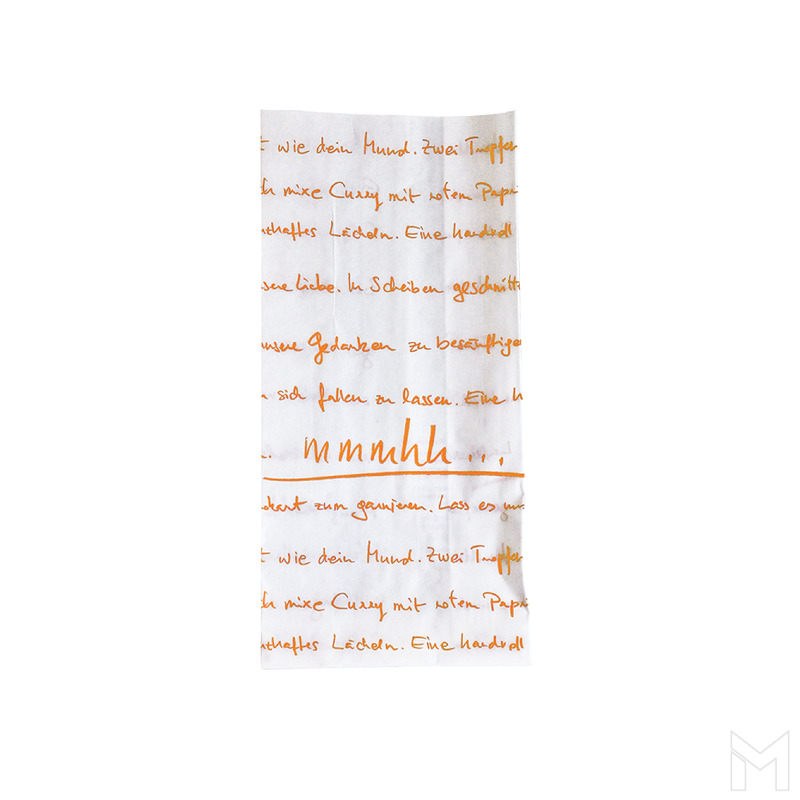 t wie dein Mund. Zwei Tropfen
ch mixe Curry mit rotem Papri
nthaftes Lächeln. Eine handvoll
nsere Liebe. In Scheiben geschnitte
unsere Gedanken zu besänftigen
n sich fallen zu lassen. Eine h
. mmmhh...
okant zum garnieren. Lass es uns
t wie dein Mund. Zwei Tropfen
ch mixe Curry mit rotem Papri
nthaftes Lächeln. Eine handvoll
M